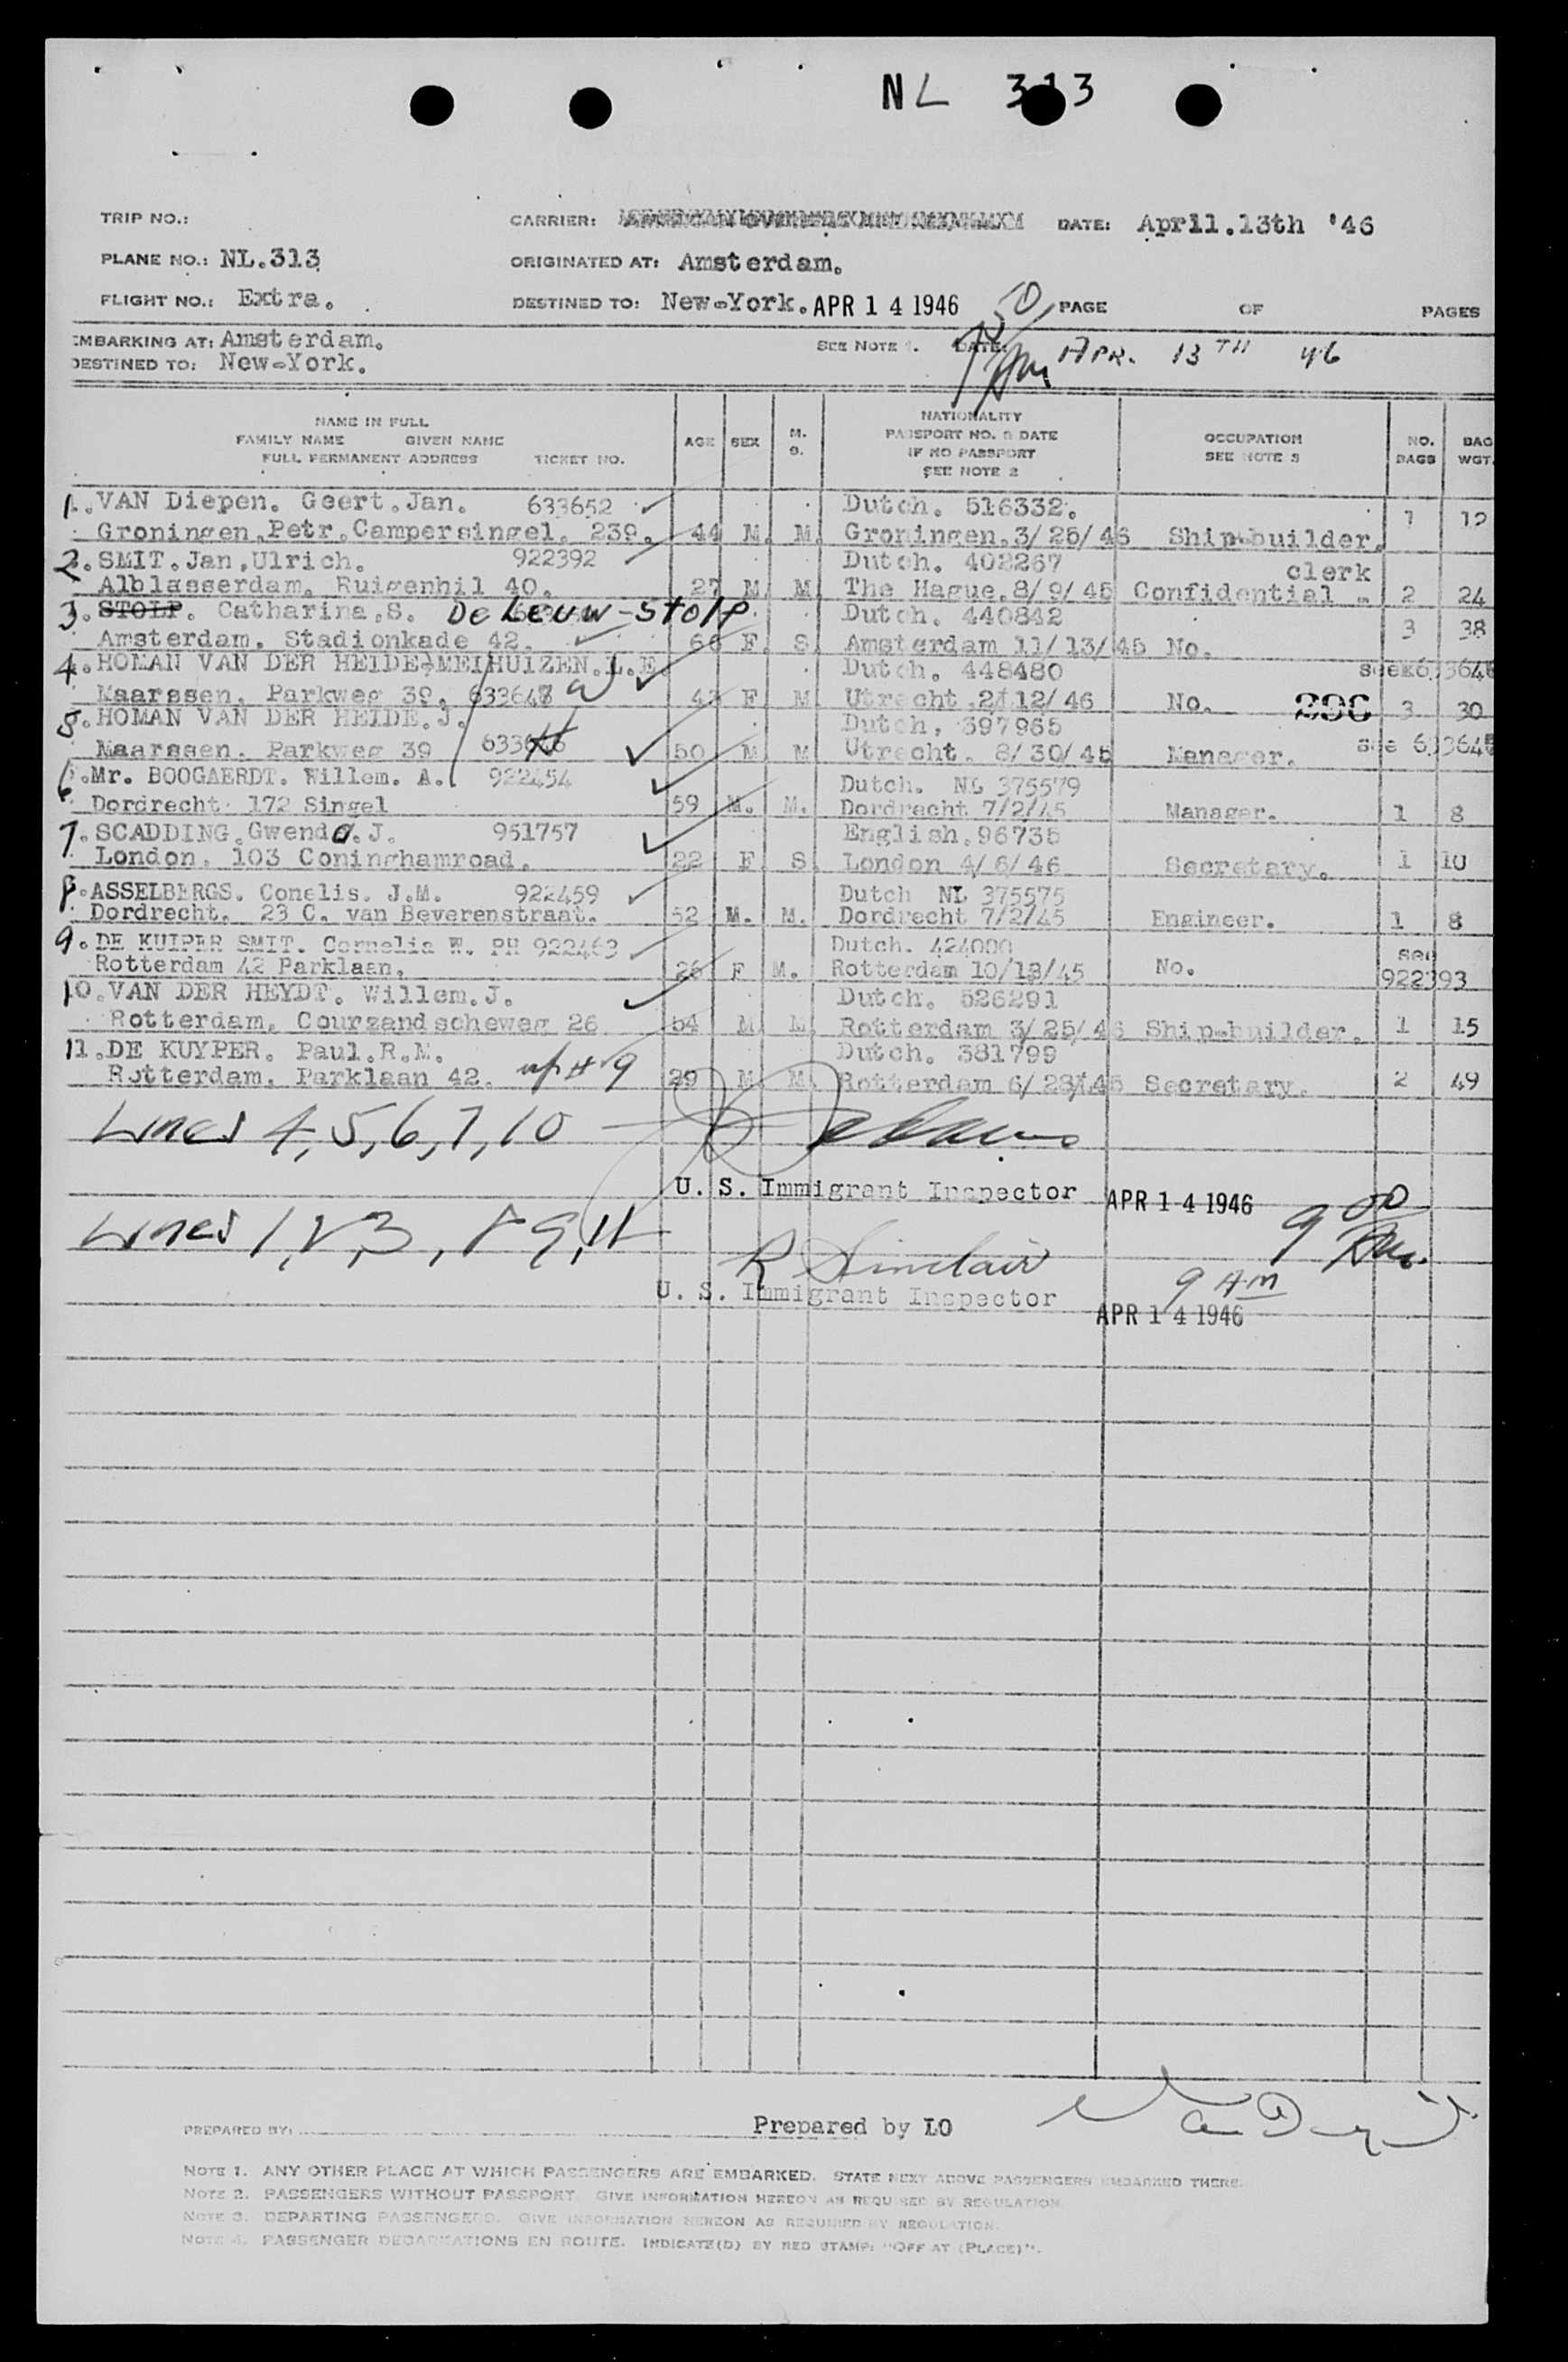 NL 313
TRIP NO.: CARRIER: DATE: April.13th '46
PLANE NO.: NL.313 ORIGINATED AT: Amsterdam.
FLIGHT NO.: Extra. DESTINED TO: New-York. APR 14 1946 PAGE OF PAGES
EMBARKING AT: Amsterdam. SEE NOTE 1. DATE: APR. 13TH 46
DESTINED TO: New-York.
NAME IN FULL
FAMILY NAME GIVEN NAME
FULL PERMANENT ADDRESS TICKET NO.
AGE SEX M. S.
NATIONALITY
PASSPORT NO. & DATE
IF NO PASSPORT
SEE NOTE 2
OCCUPATION
SEE NOTE 3
NO. BAGS
BAG WGT.
1. VAN Diepen. Geert.Jan. 633652 Dutch. 516332.
Groningen.Petr.Campersingel. 239. 44 M. M. Groningen.3/25/46 Ship-builder. 1 12
2. SMIT.Jan.Ulrich. 922392 Dutch. 402267 clerk
Alblasserdam. Ruigenhil 40. 27 M M The Hague.8/9/45 Confidential - 2 24
3. STOLP. Catharina.S. De Leuw-Stolp Dutch. 440842
Amsterdam. Stadionkade 42. 66 F. S. Amsterdam 11/13/45 No. 3 38
4. HOMAN VAN DER HEIDE-MEIHUIZEN.L.E. Dutch. 448480
Maarssen. Parkweg 39. 43 F M Utrecht.2/12/46 No. 3 30
5. HOMAN VAN DER HEIDE.J. Dutch. 397965
Maarssen. Parkweg 39 50 M M Utrecht. 8/30/45 Manager.
6. Mr. BOOGAERDT. Willem. A. 922454 Dutch. NL 375579
Dordrecht 172 Singel 59 M. M. Dordrecht 7/2/45 Manager. 1 8
7. SCADDING.Gwenda.J. 951757 English.96735
London. 103 Coninghamroad. 22 F. S. London 4/6/46 Secretary. 1 10
8. ASSELBERGS. Conelis. J.M. 922459 Dutch NL 375575
Dordrecht. 23 C. van Beverenstraat. 52 M. M. Dordrecht 7/2/45 Engineer. 1 8
9. DE KUIPER SMIT. Cornelia W. PH 922463 Dutch. 424000 see
Rotterdam 42 Parklaan. 26 F M. Rotterdam 10/18/45 No. 922393
10. VAN DER HEYDT. Willem.J. Dutch. 526291
Rotterdam. Courzandscheweg 26 54 M M. Rotterdam 3/25/46 Ship-builder. 1 15
11. DE KUYPER. Paul.R.M. Dutch. 381799
Rotterdam. Parklaan 42. #9 29 M M. Rotterdam 6/28/45 Secretary. 2 49
Lines 4,5,6,7,10
U. S. Immigrant Inspector APR 14 1946 9 00 AM.
Lines 1,2,3, 8 9,11
R Sinclair
U. S. Immigrant Inspector 9 AM
APR 14 1946
PREPARED BY: Prepared by LO
NOTE 1. ANY OTHER PLACE AT WHICH PASSENGERS ARE EMBARKED. STATE NEXT ABOVE PASSENGERS EMBARKED THERE.
NOTE 2. PASSENGERS WITHOUT PASSPORT. GIVE INFORMATION HEREON AS REQUIRED BY REGULATION.
NOTE 3. DEPARTING PASSENGERS. GIVE INFORMATION HEREON AS REQUIRED BY REGULATION.
NOTE 4. PASSENGER DEBARKATIONS EN ROUTE. INDICATE(D) BY RED STAMP: "OFF AT (PLACE)".